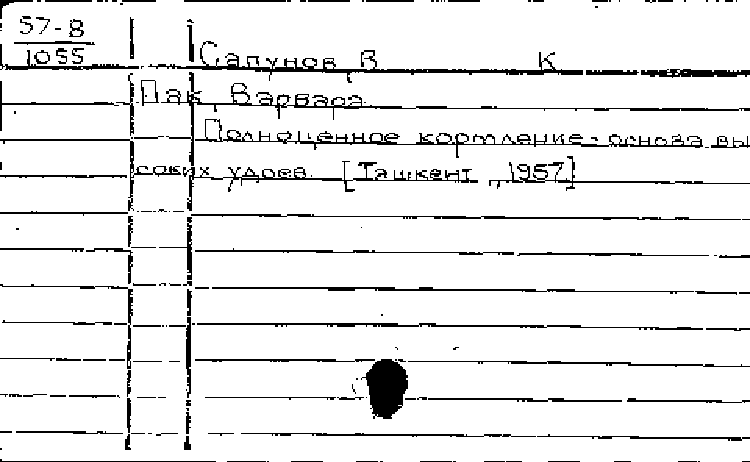 57-8
1055
Сапунов, В К
Пак, Варвара
Полноценное кормление - основа вы
соких удоев. [Ташкент, 1957]